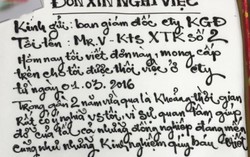 ĐƠN XIN NGHỈ VIỆC
Kính gửi: ban giám đốc cty KGĐ
Tôi tên: Mr.V - Kts XTK số 2
Hôm nay tôi viết đơn này, mong cấp
trên cho tôi được thôi việc ở cty
từ ngày 01.03.2016
Trong gần 2 năm vừa qua là khoảng thời gian
rất có ý nghĩa với tôi, vì sự quan tâm giúp
đỡ của tất cả những đồng nghiệp
cũng như những kinh nghiệm quý báu